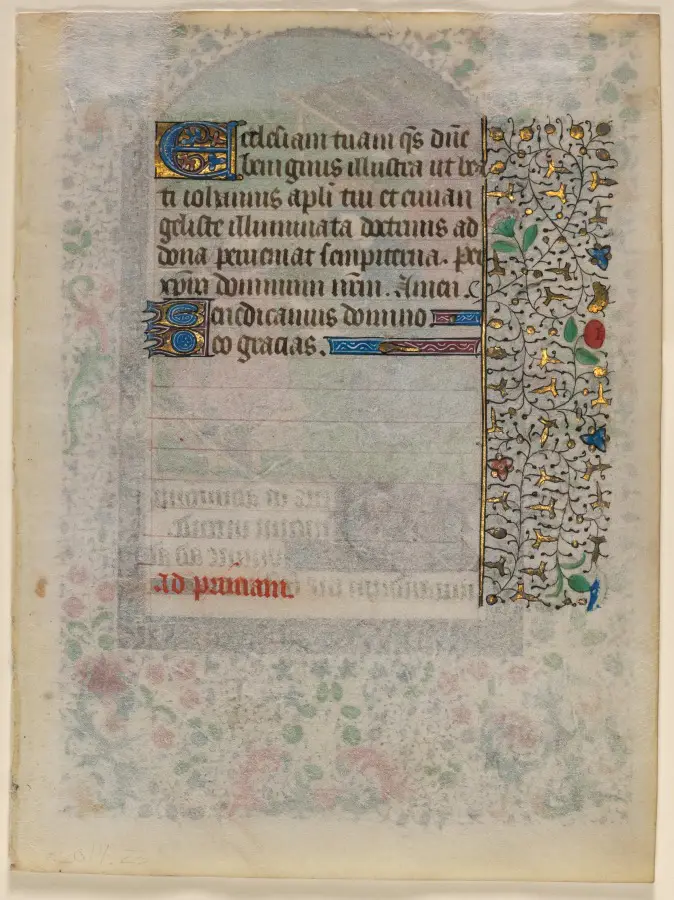 Ecclesiam tuam q̄s dn̄e
benignus illustra ut bea
ti iohannis apl̄i tui et euuan
geliste illuminata doctrinis ad
dona perueniat sempiterna. Per
xp̄m dominum nr̄m. Amen
Benedicamus domino
Deo gracias.
ad primam.